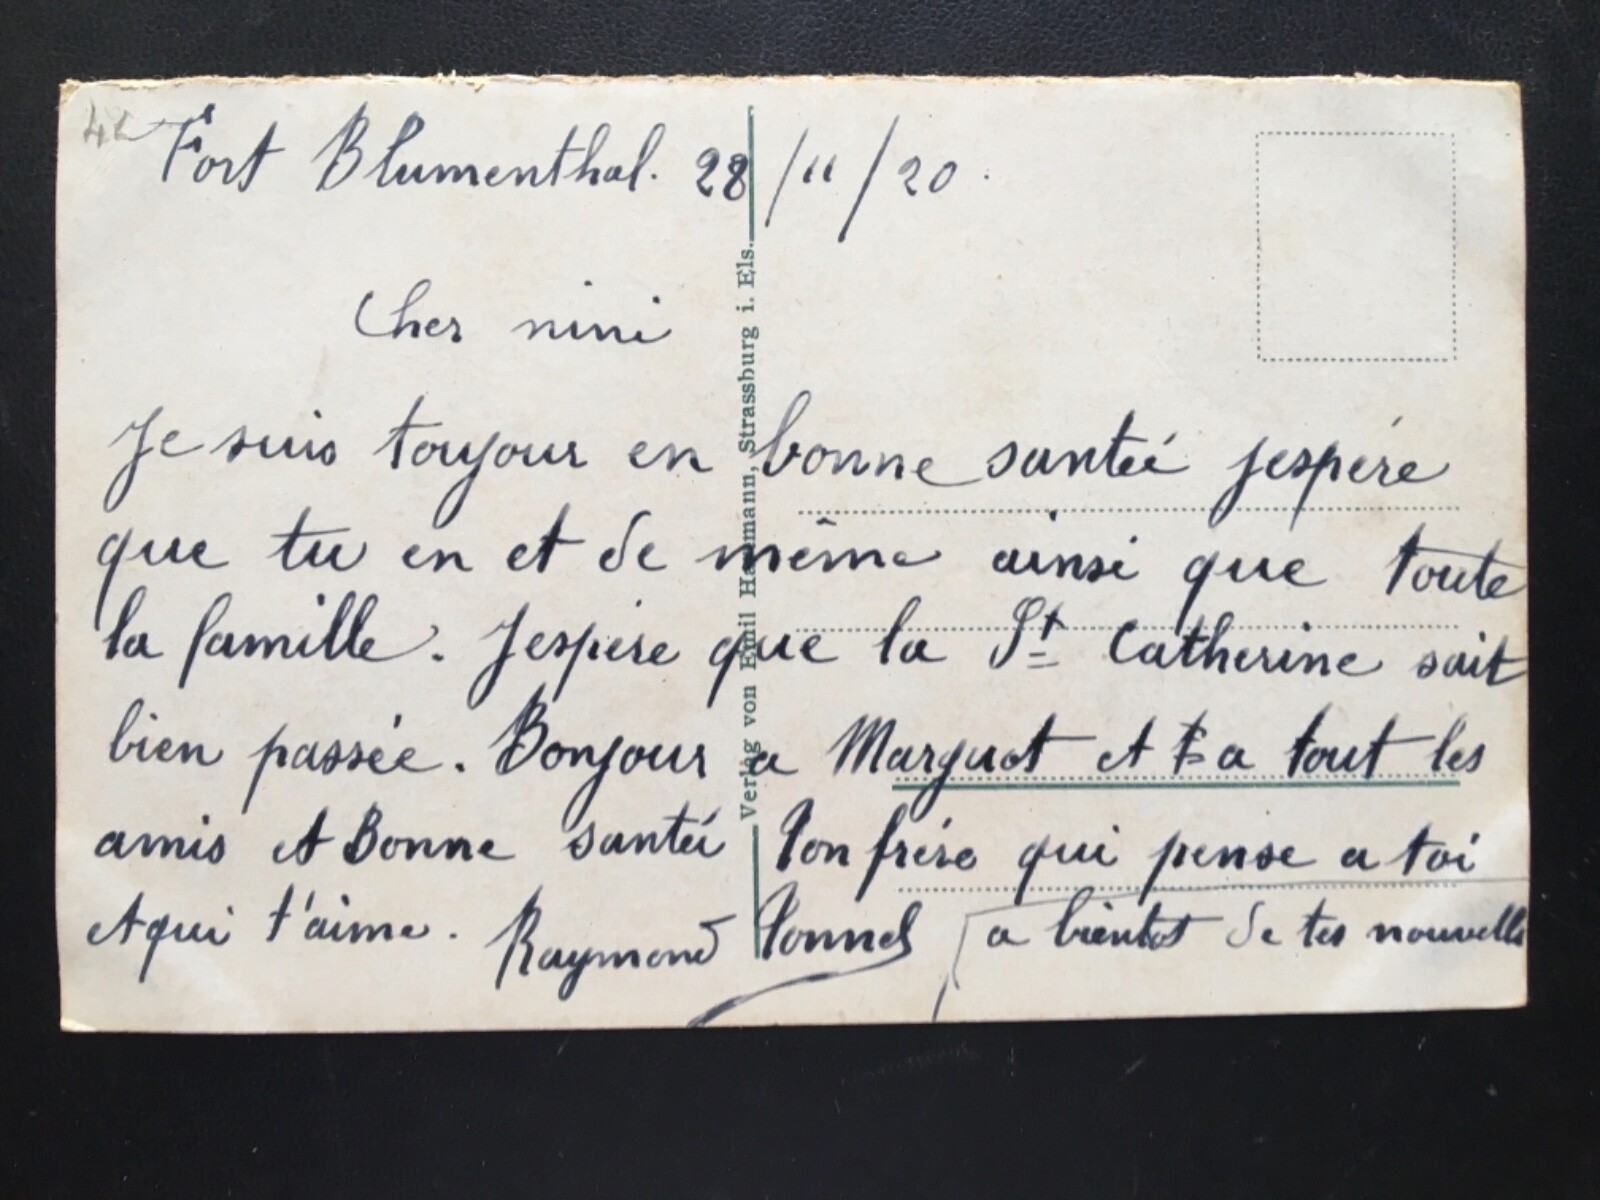 Fort Blumenthal. 28/11/20.
Cher nini
Je suis toujour en bonne santéé jespére
que tu en et de même ainsi que toute
la famille. Jespére que la St Catherine sait
bien passée. Bonjour a Marguot et a tout les
amis et Bonne santéé Ton frére qui pense a toi
et qui t'aime. Raymond
a bientot de tes nouvelle
Verlag von Emil Hartmann, Strassburg i. Els.